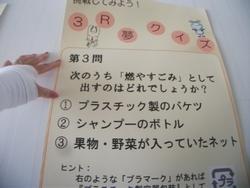 挑戦してみよう！
3R夢クイズ
第3問
次のうち「燃やすごみ」として
出すのはどれでしょうか？
① プラスチック製のバケツ
② シャンプーのボトル
③ 果物・野菜が入っていたネット
ヒント：
右のような「プラマーク」があれば
プラ